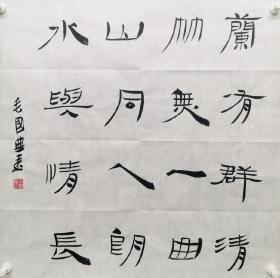 蘭有群清
竹無一曲
山同人朗
水與情長
毛國典書